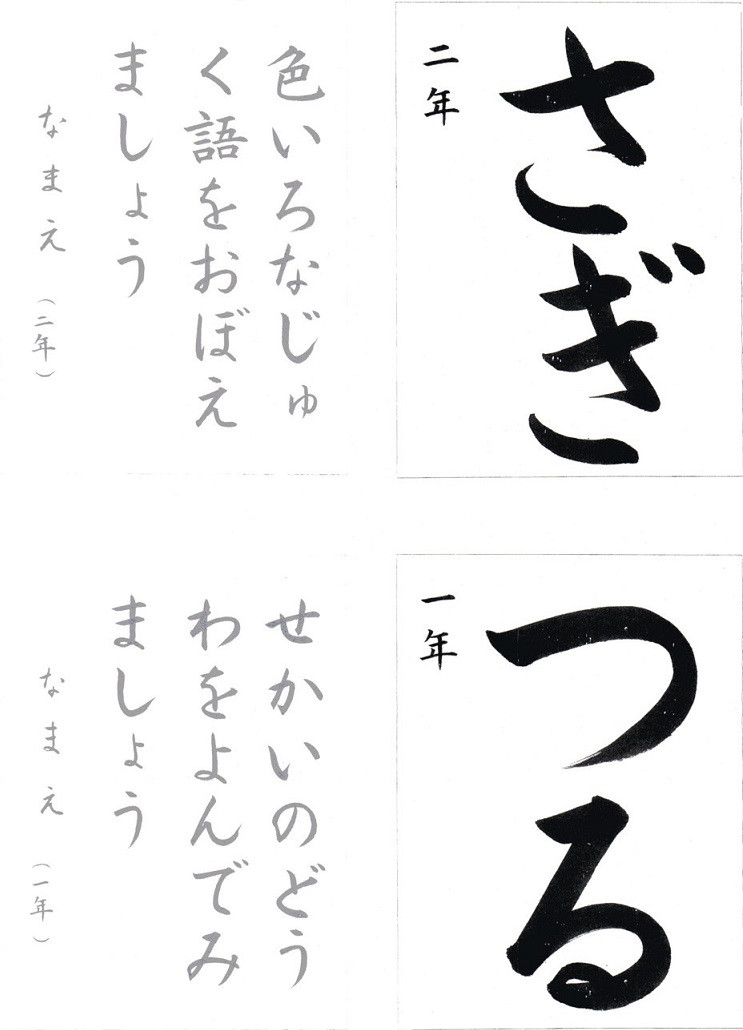 さぎ
二年
色いろなじゅ
く語をおぼえ
ましょう
なまえ（二年）
つる
一年
せかいのどう
わをよんでみ
ましょう
なまえ（一年）